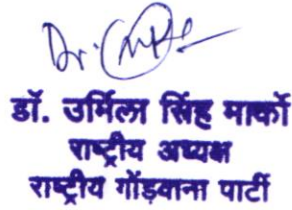 Dr.
डॉ. उर्मिला सिंह मार्को
राष्ट्रीय अध्यक्ष
राष्ट्रीय गोंड़वाना पार्टी